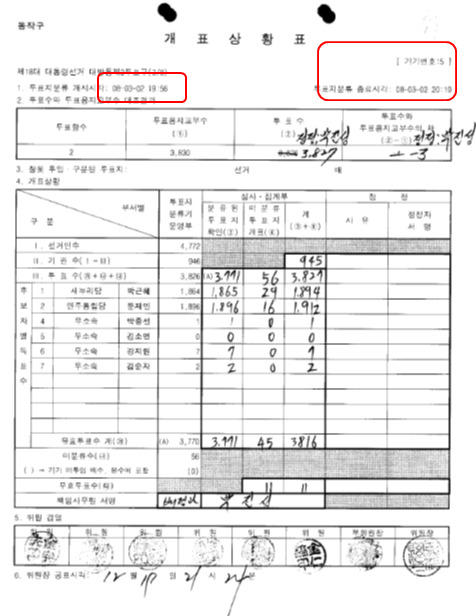 동작구
개 표 상 황 표
[ 기기번호:5 ]
제18대 대통령선거
1. 투표지분류 개시시각: 08-03-02 19:56
투표지분류 종료시각: 08-03-02 20:10
2. 투표수와 투표용지교부수 대조결과
투표함수 투표용지교부수 (①) 투 표 수 (②) 투표수와 투표용지교부수의 차 (②-①)
2 3,830 3,827 -3
3. 잘못 투입·구분된 투표지: 선거 매
4. 개표상황
구 분 부서별 투표지분류기운영부 심사·집계부 정 정
분류된 투표지 확인(②) 미분류 투표지 개표(④) 계 (③+④) 사 유 정정자 서 명
Ⅰ. 선거인수 4,772
Ⅱ. 기 권 수 (Ⅰ-Ⅲ) 946 945
Ⅲ. 투 표 수 3,826 (A) 3,771 56 3,827
후보자별득표수
1 새누리당 박근혜 1,864 1,865 29 1,894
2 민주통합당 문재인 1,896 1,896 16 1,912
4 무소속 박종선 1 1 0 1
5 무소속 김소연 0 0 0 0
6 무소속 강지원 7 7 0 7
7 무소속 김순자 2 2 0 2
유효투표수 계 (A) 3,770 3,771 45 3816
미분류수 56
( ) 기기 미투입 매수, 분수에 포함 (0)
무효투표수 11 11
책임사무원 서명
5. 위원 검열
위 원 위 원 위 원 위 원 위 원 위 원 부위원장 위원장
6. 위원장 공표시각: 12 월 19 일 21 시 24 분